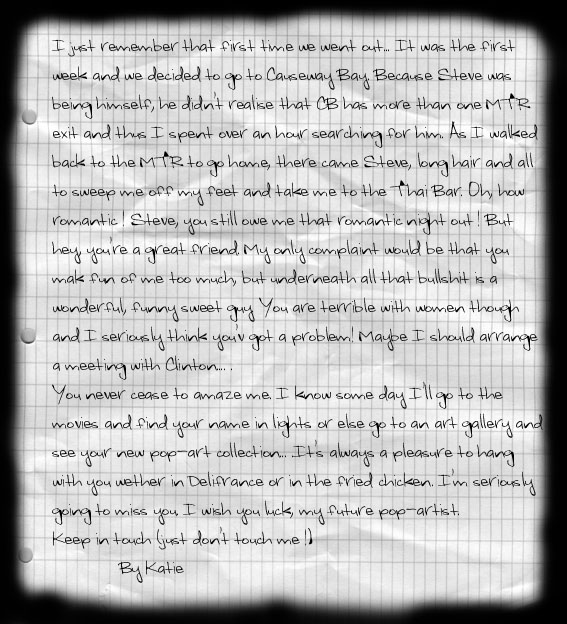 I just remember that first time we went out... It was the first
week and we decided to go to Causeway Bay. Because Steve was
being himself, he didn't realise that CB has more than one MTR
exit and thus I spent over an hour searching for him. As I walked
back to the MTR to go home, there came Steve, long hair and all
to sweep me off my feet and take me to the Thai Bar. Oh, how
romantic! Steve, you still owe me that romantic night out! But
hey, you're a great friend. My only complaint would be that you
mak fun of me too much, but underneath all that bullshit is a
wonderful, funny sweet guy. You are terrible with women though
and I seriously think you'v got a problem! Maybe I should arrange
a meeting with Clinton....
You never cease to amaze me. I know some day I'll go to the
movies and find your name in lights or else go to an art gallery and
see your new pop-art collection... It's always a pleasure to hang
with you wether in Delifrance or in the fried chicken. I'm seriously
going to miss you. I wish you luck, my future pop-artist.
Keep in touch (just don't touch me!)
By Katie